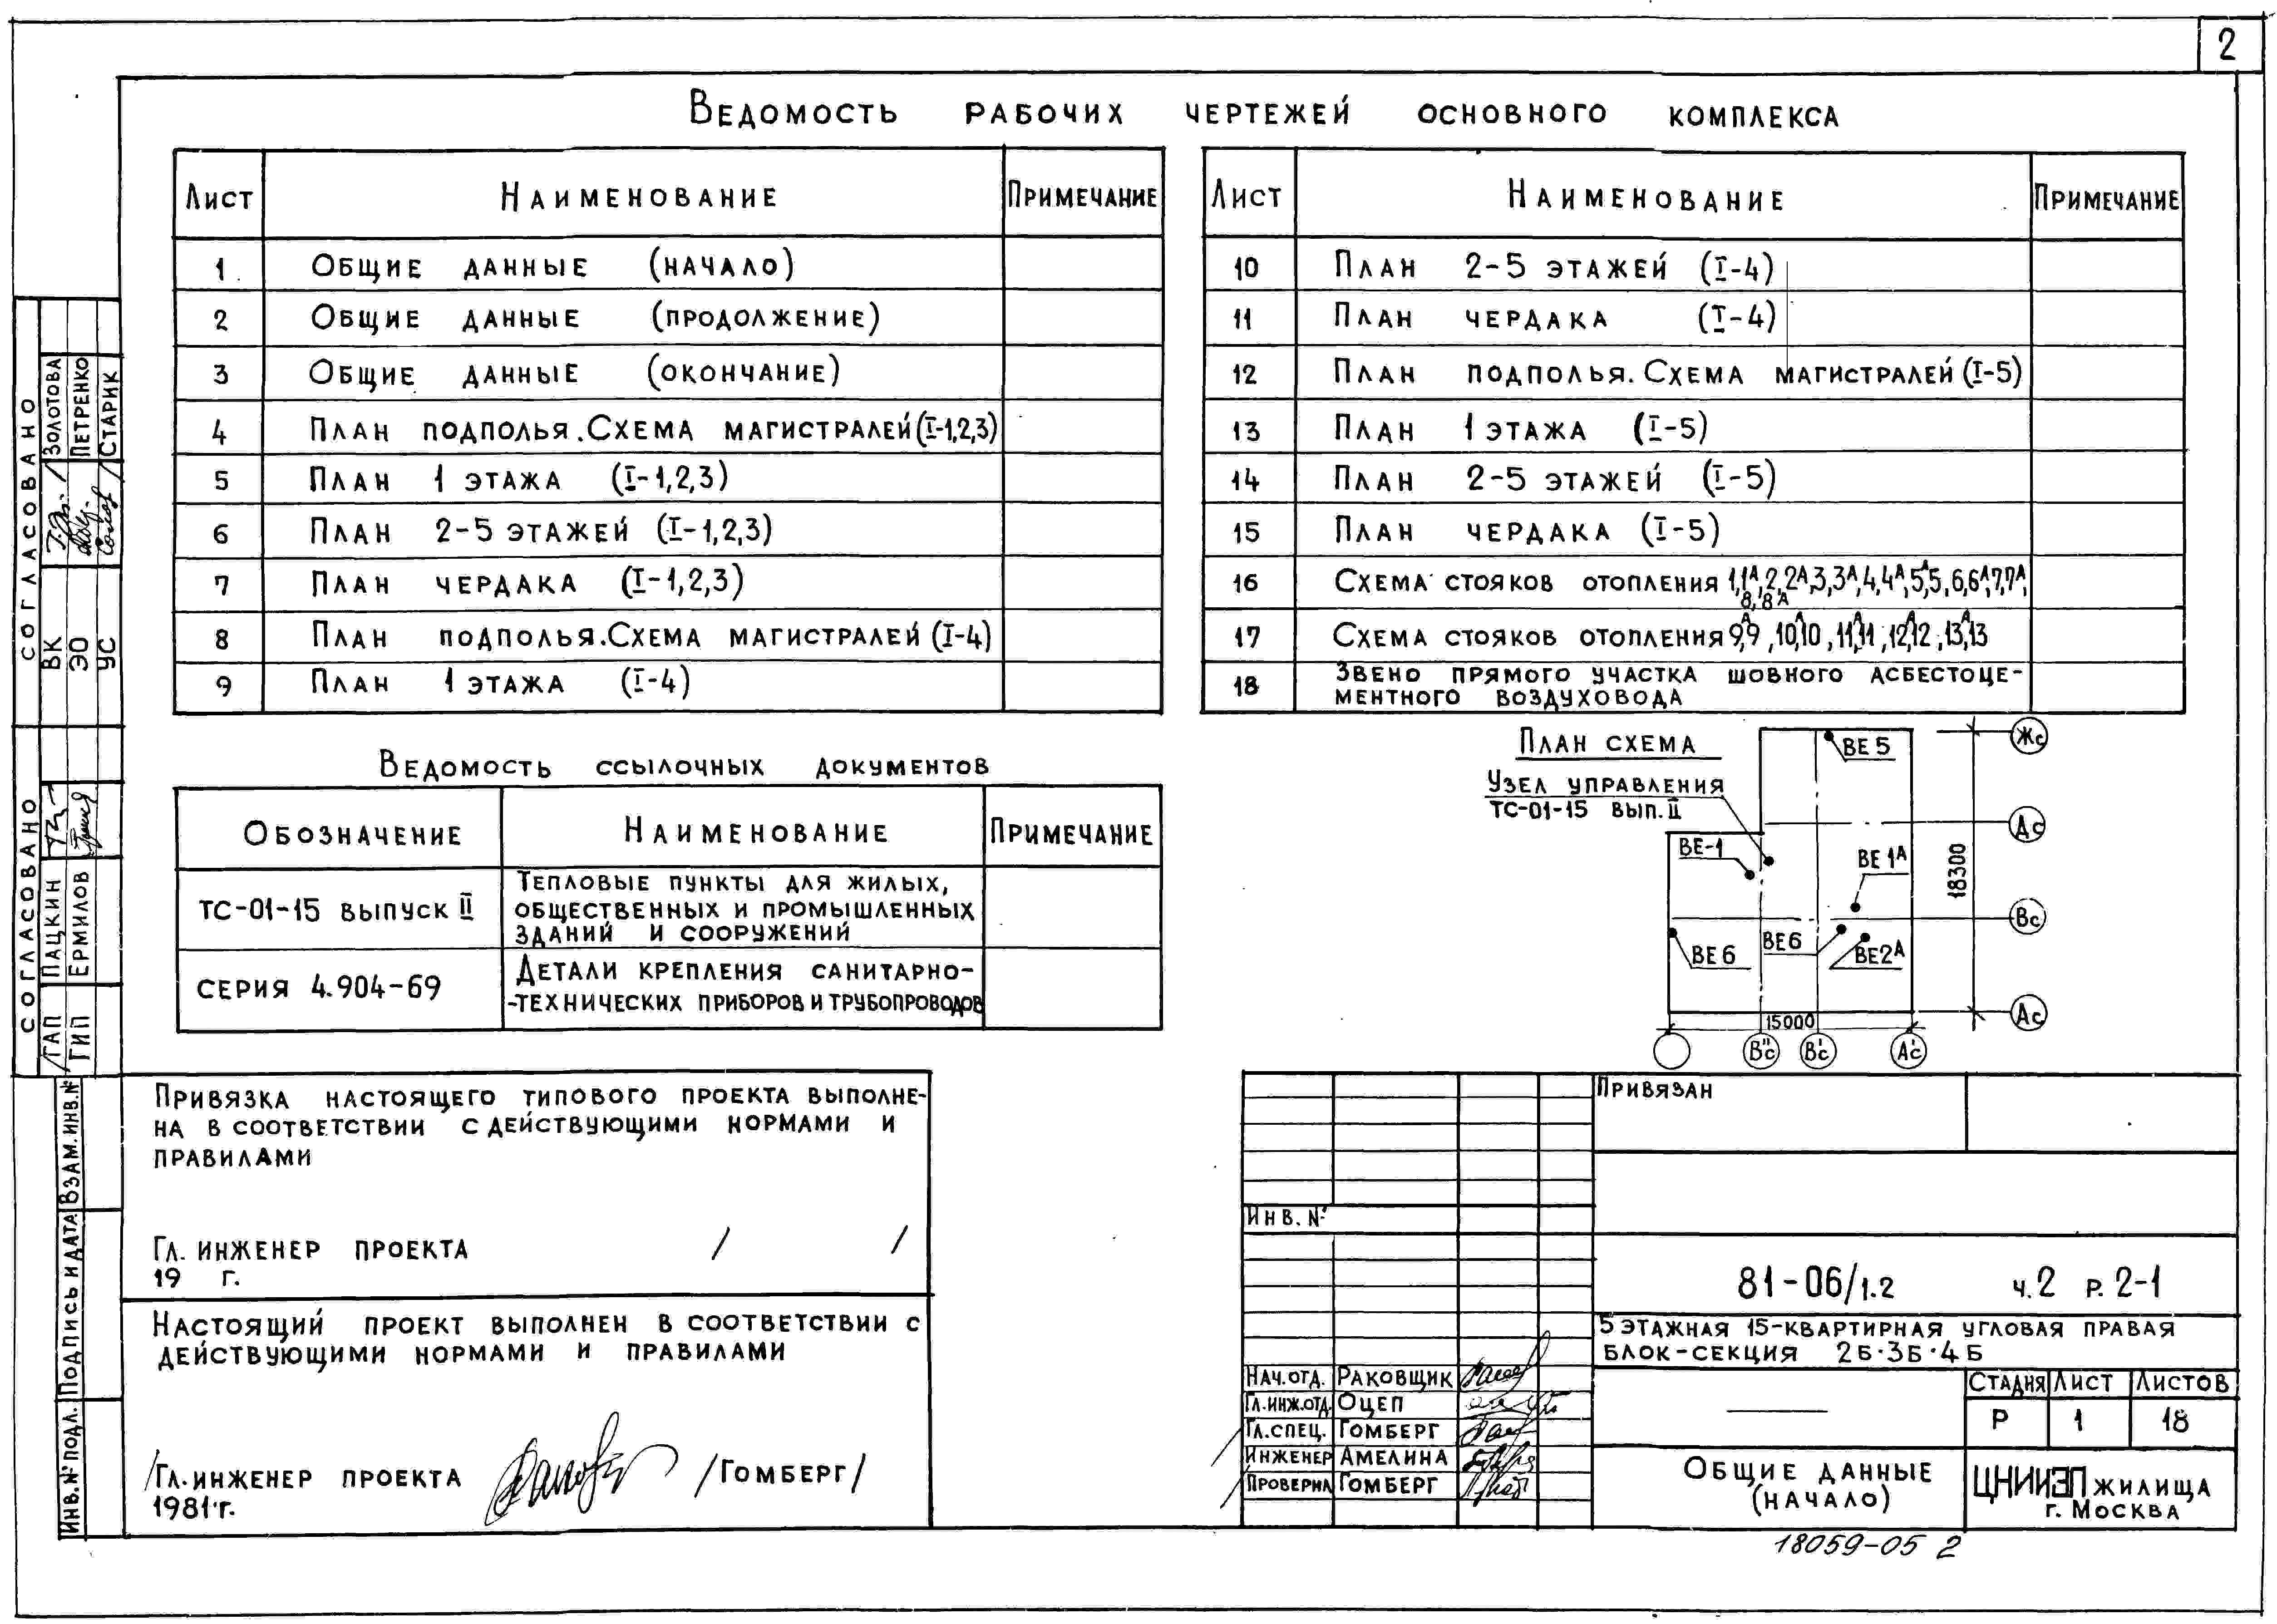 2
Ведомость рабочих чертежей основного комплекса
Лист Наименование Примечание
1 Общие данные (начало)
2 Общие данные (продолжение)
3 Общие данные (окончание)
4 План подполья. Схема магистралей (I-1,2,3)
5 План 1 этажа (I-1,2,3)
6 План 2-5 этажей (I-1,2,3)
7 План чердака (I-1,2,3)
8 План подполья. Схема магистралей (I-4)
9 План 1 этажа (I-4)
Лист Наименование Примечание
10 План 2-5 этажей (I-4)
11 План чердака (I-4)
12 План подполья. Схема магистралей (I-5)
13 План 1 этажа (I-5)
14 План 2-5 этажей (I-5)
15 План чердака (I-5)
16 Схема стояков отопления 1,1А,2,2А,3,3А,4,4А,5А,5,6,6А,7,7А,
8,8А
17 Схема стояков отопления 9А,9,10А,10,11А,11,12А,12,13А,13
18 Звено прямого участка шовного асбестоце-
ментного воздуховода
Ведомость ссылочных документов
Обозначение Наименование Примечание
ТС-01-15 выпуск II
Тепловые пункты для жилых,
общественных и промышленных
зданий и сооружений
серия 4.904-69
Детали крепления санитарно-
-технических приборов и трубопроводов
План схема
Узел управления
ТС-01-15 вып. II
ВЕ 5
ВЕ-1
ВЕ 1А
ВЕ 6
ВЕ6
ВЕ2А
18300
15000
Жс
Дс
Вс
Ас
В"с
В'с
А'с
Привязка настоящего типового проекта выполне-
на в соответствии с действующими нормами и
правилами
Гл. инженер проекта / /
19 г.
Настоящий проект выполнен в соответствии с
действующими нормами и правилами
/Гл. инженер проекта /Гомберг/
1981 г.
Привязан
Инв. №
81-06/1.2 ч.2 р. 2-1
5 этажная 15-квартирная угловая правая
блок-секция 2Б·3Б·4Б
Нач.отд. Раковщик
Гл.инж.отд. Оцеп
Гл.спец. Гомберг
Инженер Амелина
Проверил Гомберг
Стадия Лист Листов
Р 1 18
Общие данные
(начало)
ЦНИИЭП жилища
г. Москва
18059-05 2
Согласовано
ВК Золотова
ЭО Петренко
УС Старик
Согласовано
ГАП Пацкин
ГИП Ермилов
Взам.инв.№
Подпись и дата
Инв.№ подл.